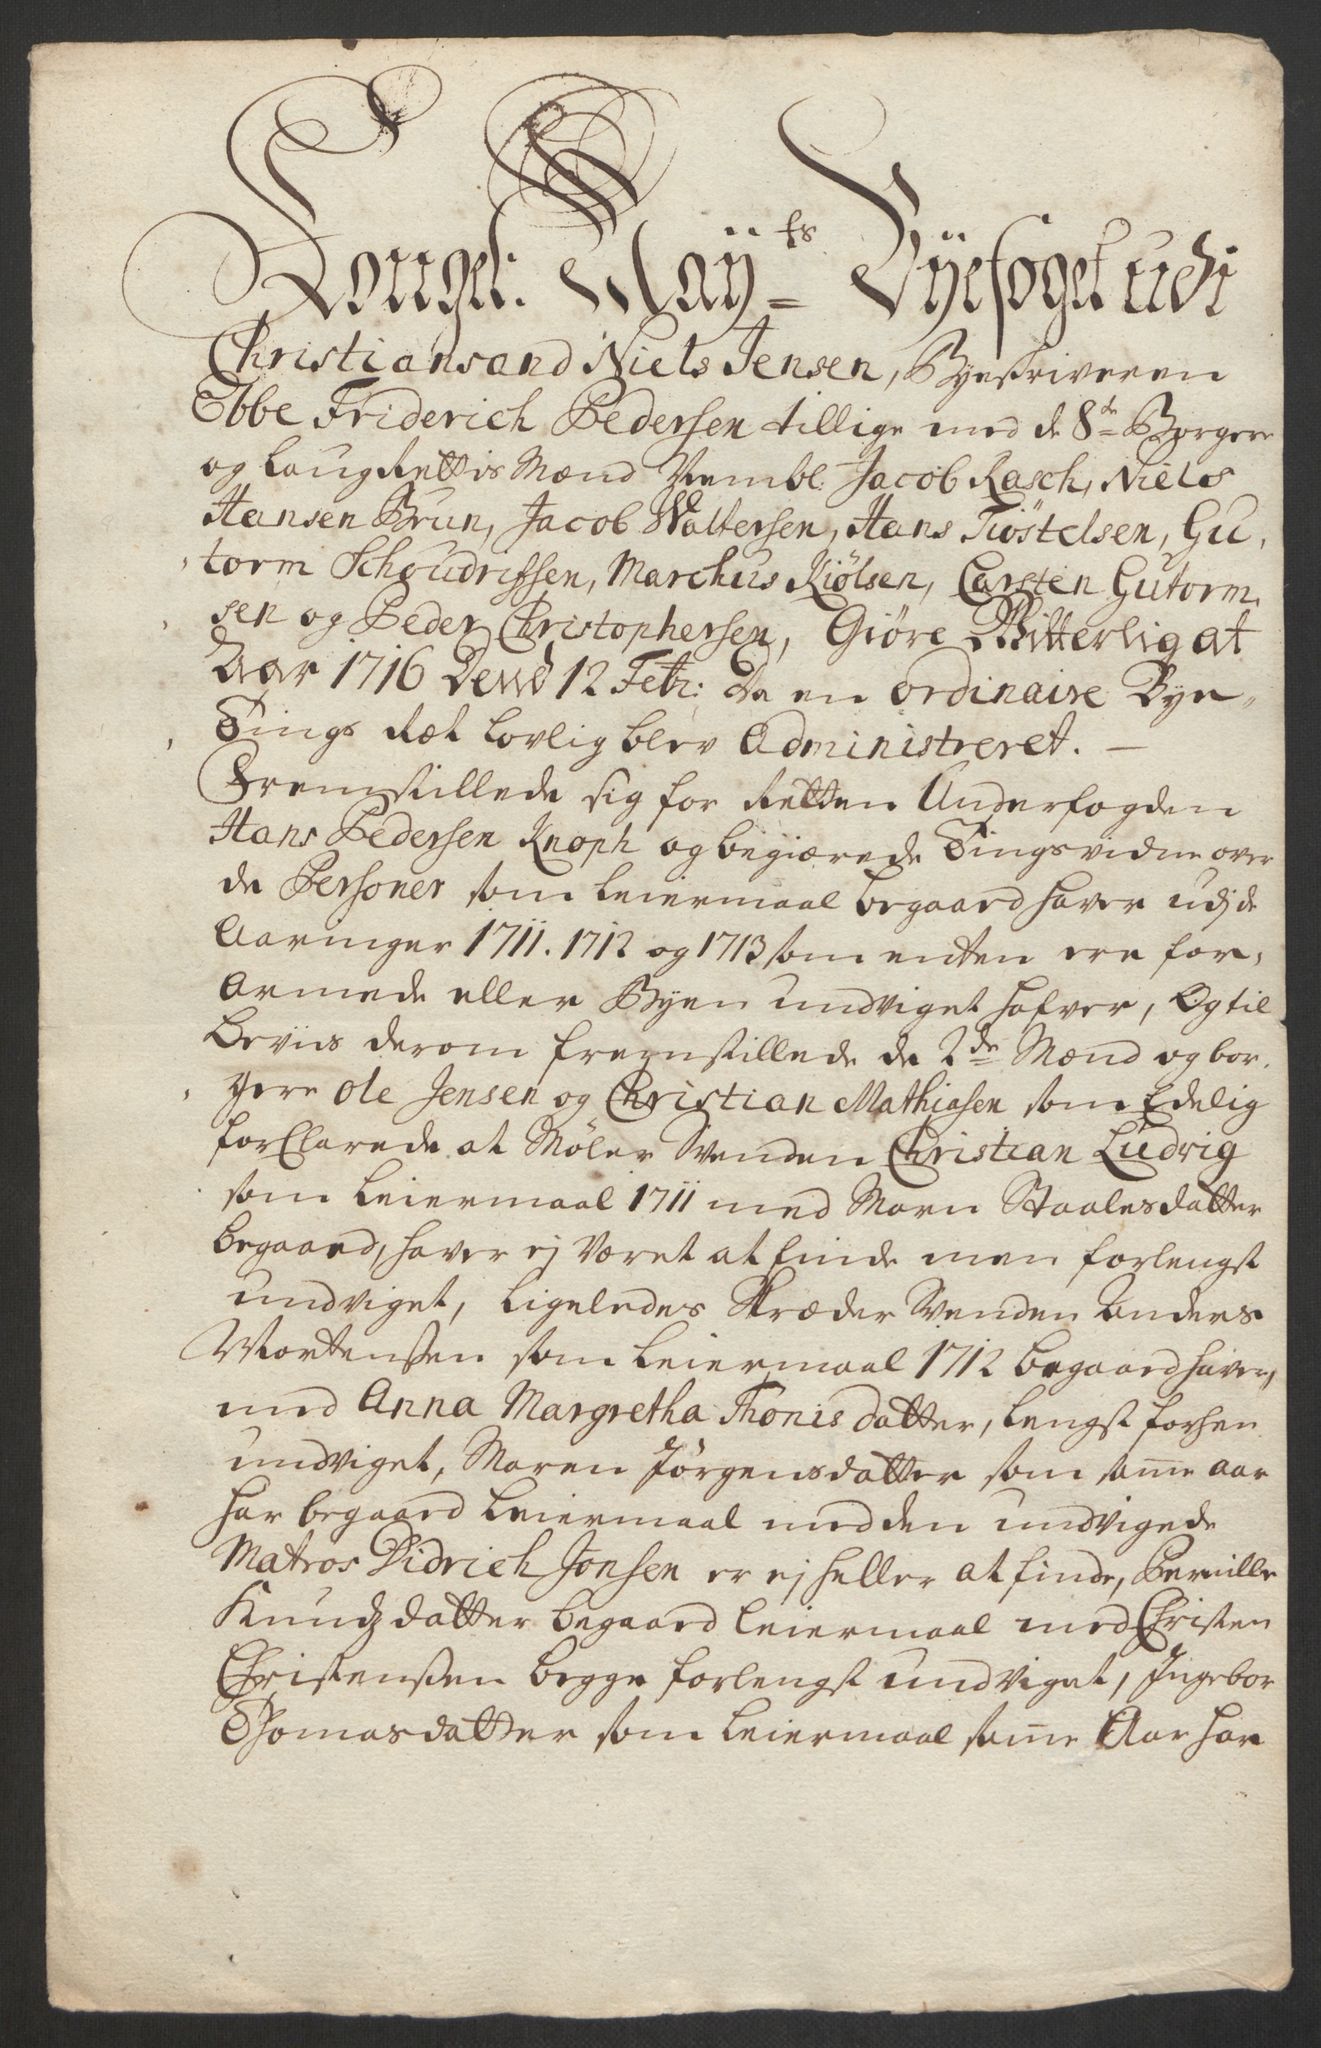 Kongel: Maÿ:ts Bÿefoget udi
Christiansand Niels Jensen, Byeskriveren
Ebbe Friderich Pedersen tillige med de 8te Borgere
og LaugRettis Mænd Nembl: Jacob Rasch, Niels
Hansen Brun, Jacob Waltersen, Hans Tiøstelsen, Gu,
torm Schoudrissen, Marchus Kiølsen, Carsten Gutorm,
sen og Peder Christophersen, Giøre Witterlig at
Aar 1716 Dend 12 Febr: Da en ordinaire Bye,,
Tings Ræt lovlig blev Administreret. —
Fremstillede sig for Retten Underfogden
Hans Pedersen Knoph og begiærede Tingsvidne over
de Personer som Leiermaal begaard haver udj de
Aaringer 1711. 1712 og 1713 som enten ere for,
armede eller Byen undviget hafver, Og til
Beviis derom fremstillede de 2de Mænd og bor,
gere Ole Jensen og Christian Mathiasen som Edelig
forClarede at Møler Svenden Christian Ludvig
som Leiermaal 1711 med Marn Staalesdatter
begaard, haver ej været at finde men forlengst
undviget, Ligeledes Skræder Svenden Anders
Mortensen som Leiermaal 1712 begaard haver,
med Anna Margretha Thonis datter, lengst forhen
undviget, Maren Jørgensdatter som same aar
har begaard Leiermaal med den undvigede
Matros Didrich Jonsen er ej heller at finde, Pernille
Knudz datter begaard Leiermaal med Christen
Christensen begge forlengst undviget, Ingebor
Thomasdatter som Leiermaal same Aar har